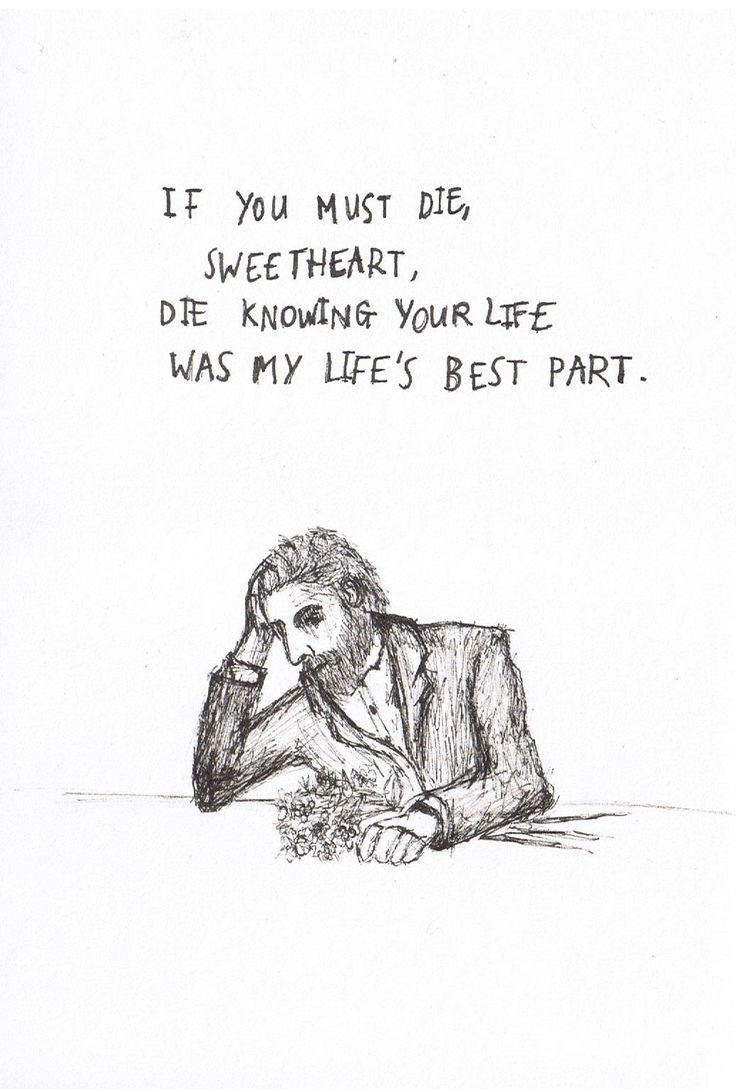 IF YOU MUST DIE,
SWEETHEART,
DIE KNOWING YOUR LIFE
WAS MY LIFE'S BEST PART.